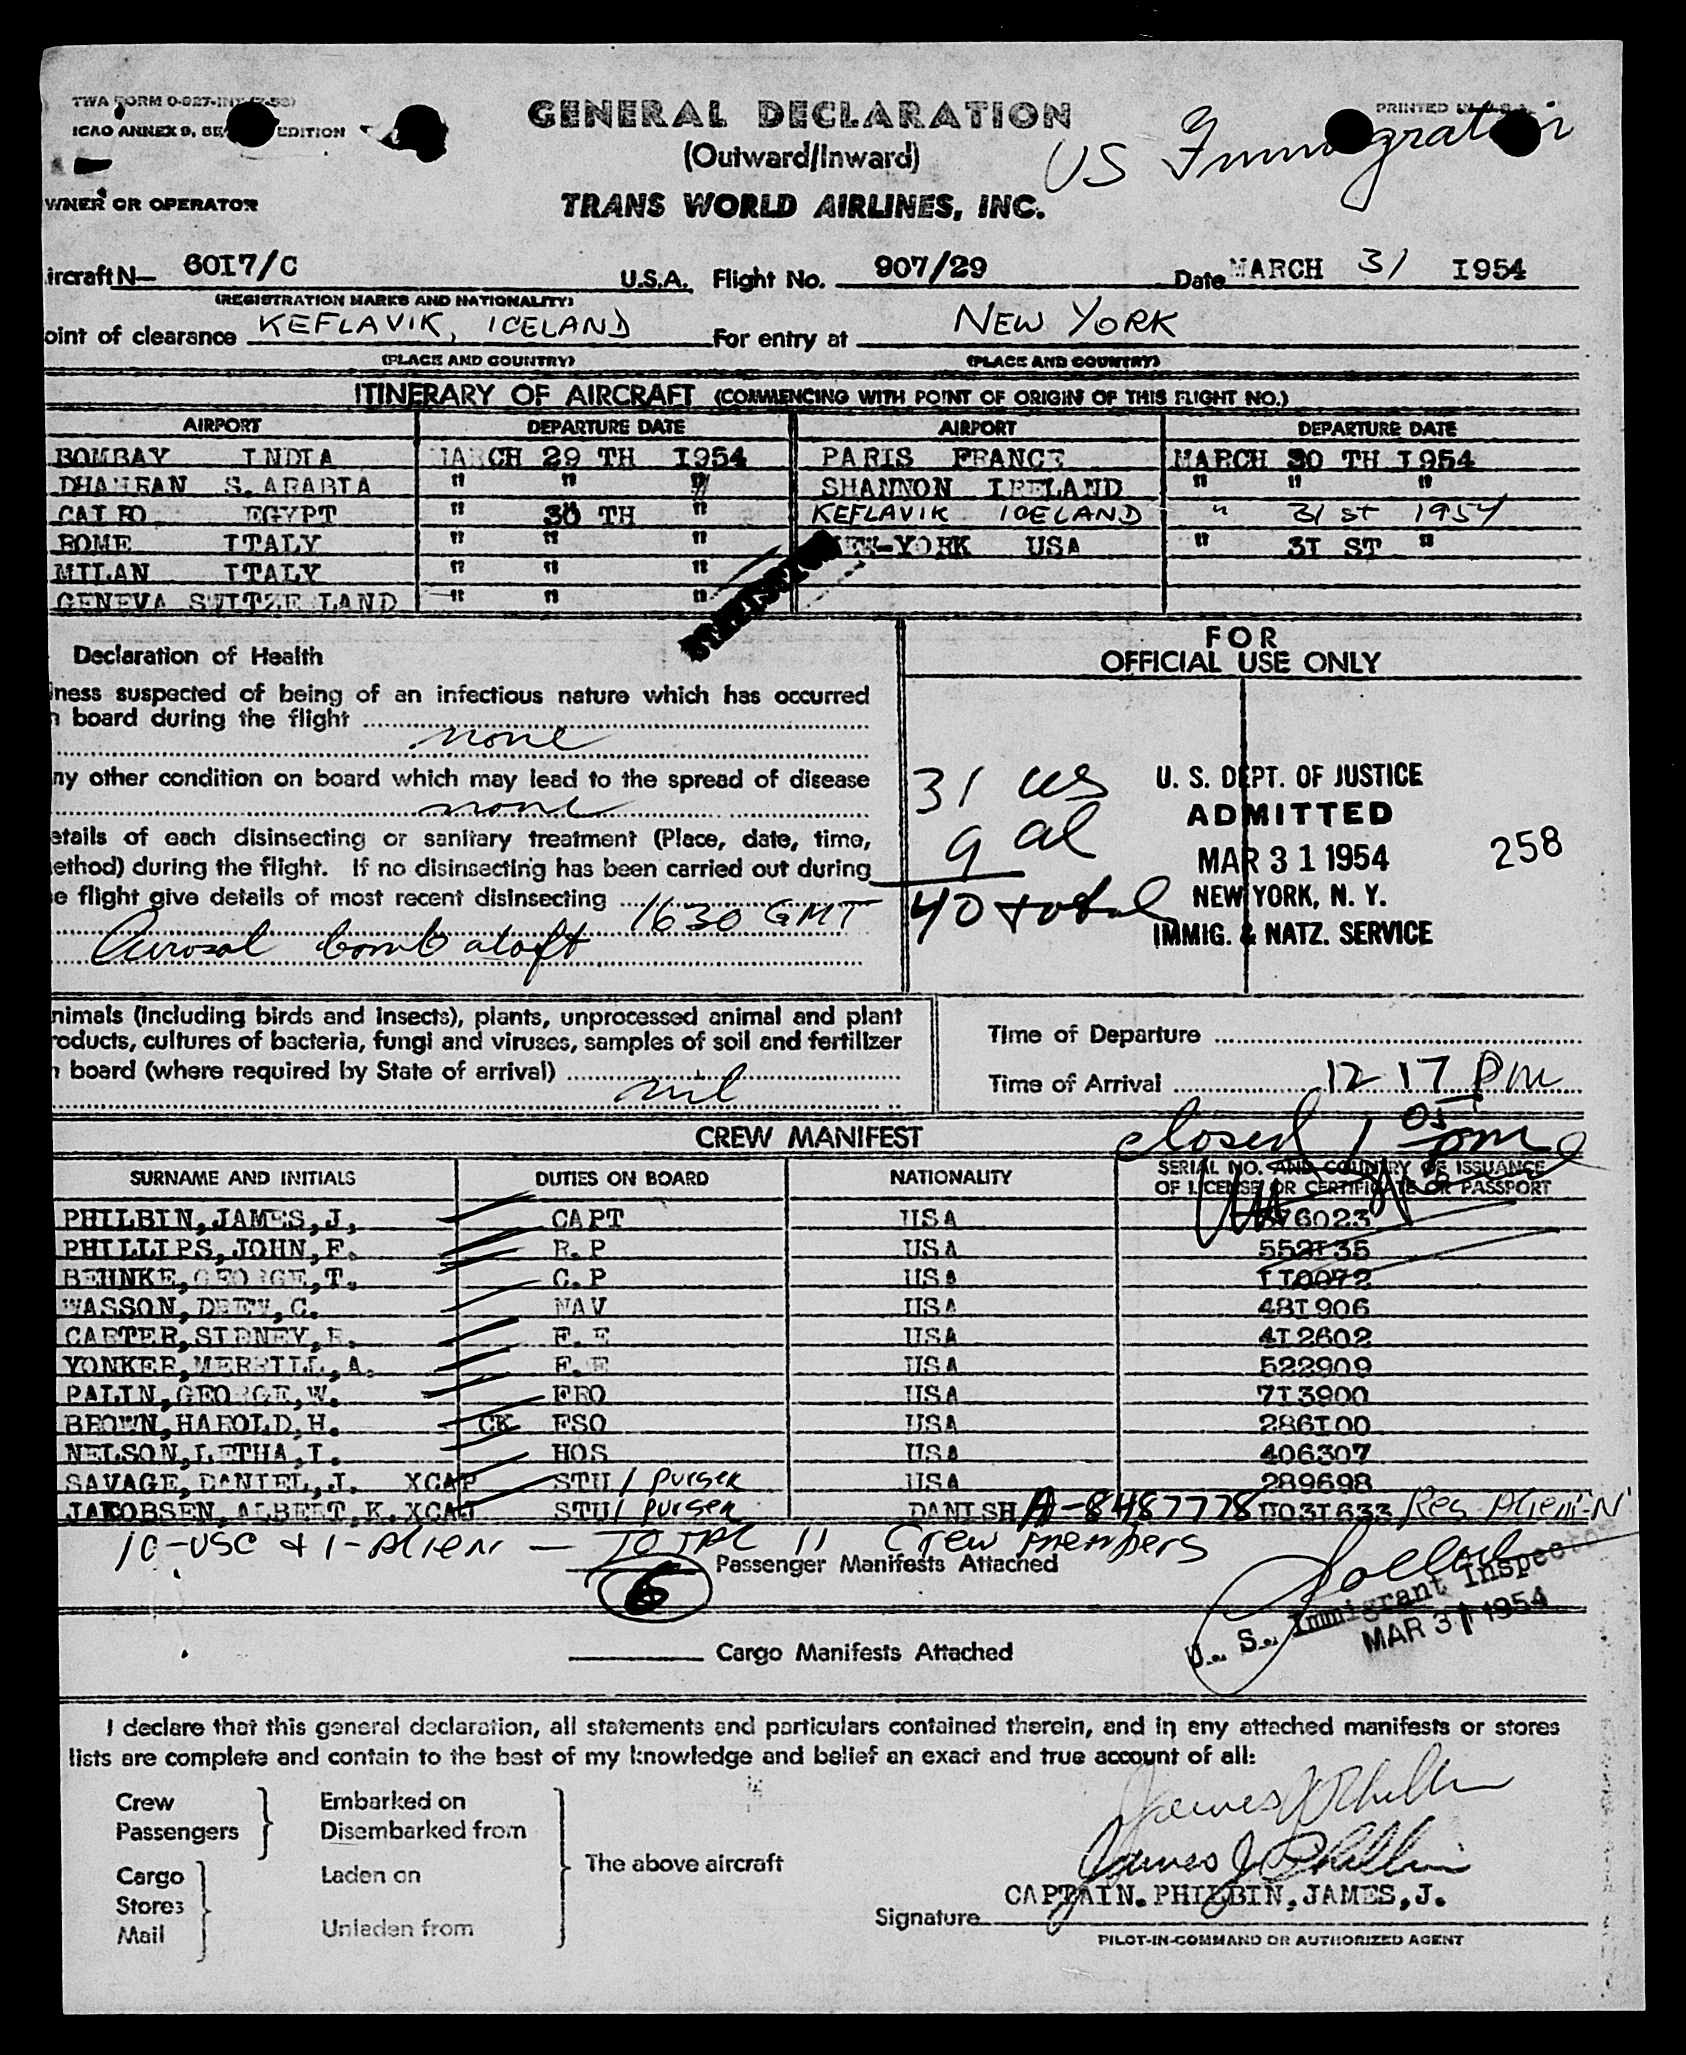 TWA FORM 0-827-INT (7-53)
PRINTED IN U.S.A.
ICAO ANNEX 9, EDITION
GENERAL DECLARATION
(Outward/Inward)
US Immigration
WNER OR OPERATOR
TRANS WORLD AIRLINES, INC.
ircraft N- 60I7/C U.S.A. Flight No. 907/29 Date MARCH 31 I954
(REGISTRATION MARKS AND NATIONALITY)
oint of clearance KEFLAVIK, ICELAND For entry at NEW YORK
(PLACE AND COUNTRY) (PLACE AND COUNTRY)
ITINERARY OF AIRCRAFT (COMMENCING WITH POINT OF ORIGIN OF THIS FLIGHT NO.)
AIRPORT DEPARTURE DATE AIRPORT DEPARTURE DATE
BOMBAY INDIA MARCH 29 TH I954 PARIS FRANCE MARCH 30 TH I954
DHAHRAN S.ARABIA " " " SHANNON IRELAND " " "
CAIRO EGYPT " 30 TH " KEFLAVIK ICELAND " 31 st 1954
ROME ITALY " " " NEW-YORK USA " 3I ST "
MILAN ITALY " " "
GENEVA SWITZERLAND " " "
FOR
OFFICIAL USE ONLY
Declaration of Health
lness suspected of being of an infectious nature which has occurred
n board during the flight
none
ny other condition on board which may lead to the spread of disease
none
etails of each disinsecting or sanitary treatment (Place, date, time,
ethod) during the flight. If no disinsecting has been carried out during
e flight give details of most recent disinsecting 1630 GMT
Aurosol bomb aloft
31 us
9 al
40 total
U. S. DEPT. OF JUSTICE
ADMITTED
MAR 31 1954
NEW YORK, N. Y.
IMMIG. & NATZ. SERVICE
258
nimals (including birds and insects), plants, unprocessed animal and plant
roducts, cultures of bacteria, fungi and viruses, samples of soil and fertilizer
n board (where required by State of arrival)
nil
Time of Departure
Time of Arrival 12 17 Pm
closed 1 05 pm
CREW MANIFEST
SURNAME AND INITIALS DUTIES ON BOARD NATIONALITY SERIAL NO. AND COUNTRY OF ISSUANCE
OF LICENSE OR CERTIFICATE OR PASSPORT
PHILBIN,JAMES,J, CAPT USA 76023
PHILLIPS,JOHN,F. R.P USA 552I35
BEHNKE,GEORGE,T. C.P USA II0072
WASSON,DREW,C. NAV USA 48I906
CARTER,SIDNEY,R. F.E USA 4I2602
YONKER,MERRILL,A. F.E USA 522909
PALIN,GEORGE,W. FRO USA 7I3900
BROWN,HAROLD,H. CK FSO USA 286I00
NELSON,LETHA,I. HOS USA 406307
SAVAGE,DANIEL,J. XCAP STU / purser USA 289698
JAKOBSEN,ALBERT,K.XCAJ STU/ purser DANISH A-8487778 U03I633 Res Alien-N
10-USC & 1-Alien — TOTAL 11 Crew members
6 Passenger Manifests Attached
U. S. Immigrant Inspector
MAR 31 1954
Cargo Manifests Attached
I declare that this general declaration, all statements and particulars contained therein, and in any attached manifests or stores
lists are complete and contain to the best of my knowledge and belief an exact and true account of all:
James J Philbin
James J Philbin
Crew
Passengers
Embarked on
Disembarked from
Cargo
Stores
Mail
Laden on
Unladen from
The above aircraft
CAPTAIN.PHILBIN,JAMES,J.
Signature
PILOT-IN-COMMAND OR AUTHORIZED AGENT